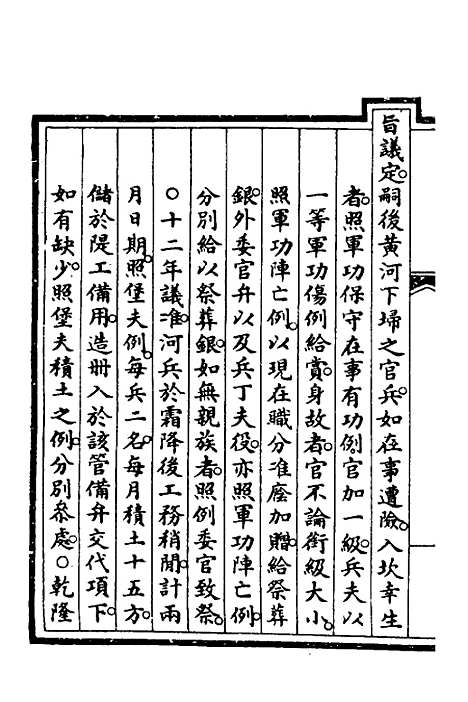 旨議定。嗣後黃河下埽之官兵。如在事遭險。入坎幸生
者。照軍功保守在事有功例官加一級。兵夫以
一等軍功傷例給賞。身故者。官不論銜級大小。
照軍功陣亡例。以現在職分准廕加贈。給祭葬
銀。外委官弁以及兵丁夫役。亦照軍功陣亡例。
分別給以祭葬銀。如無親族者。照例委官致祭。
○十二年議准。河兵於霜降後工務稍閒。計兩
月日期。照堡夫例。每兵二名。每月積土十五方。
儲於隄工備用。造冊入於該管備弁交代項下。
如有缺少。照堡夫積土之例。分別叅處。○乾隆